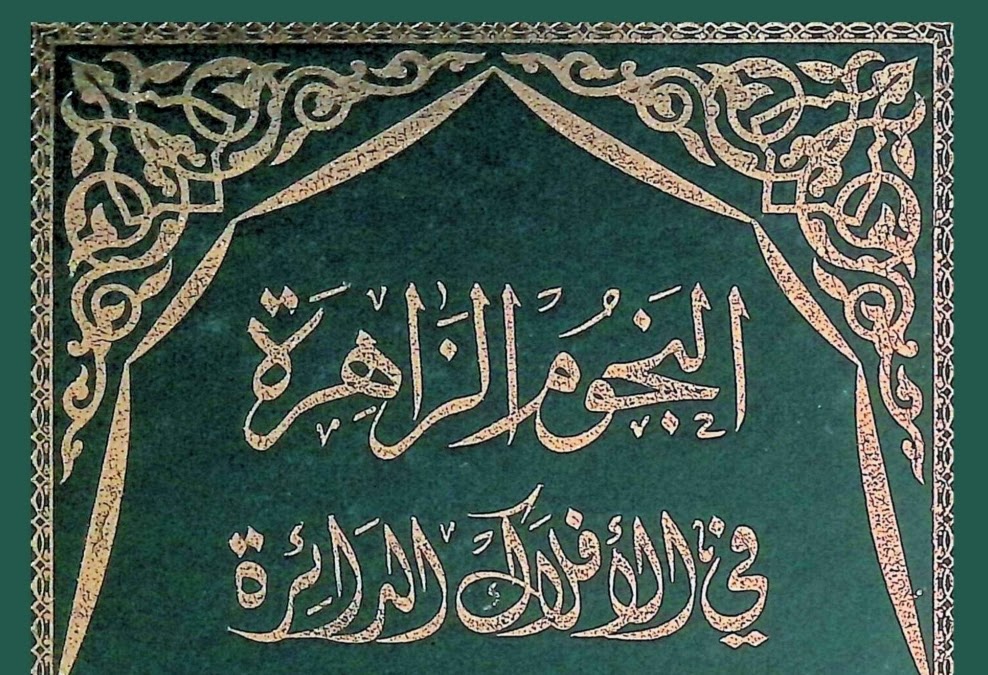 النُّجُومُ الزَّاهِرَة
في الأَفْلَاكِ الدَّائِرَة